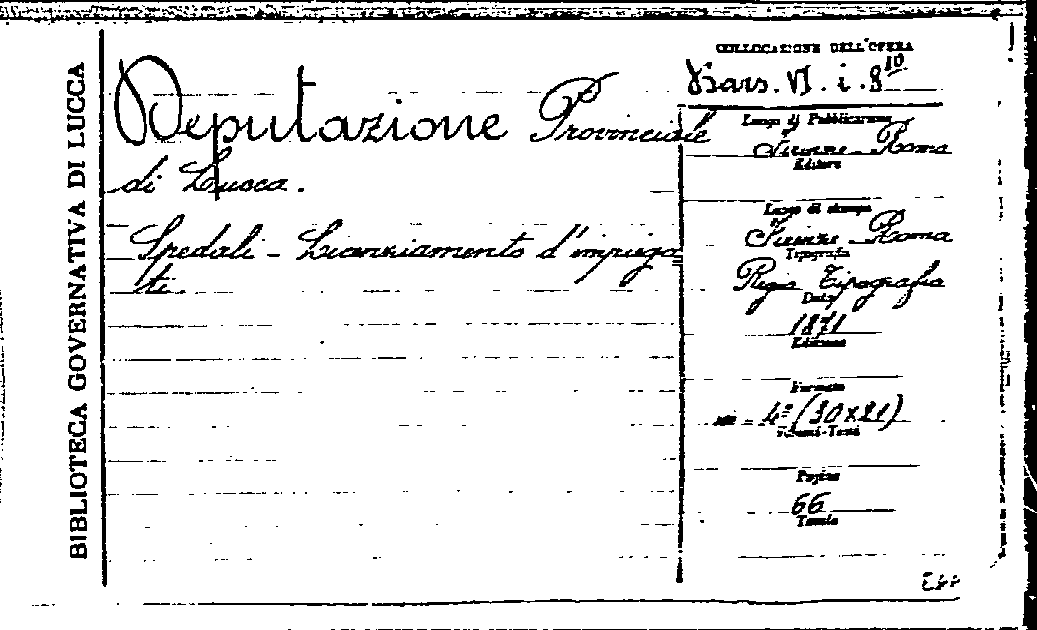 BIBLIOTECA GOVERNATIVA DI LUCCA
Deputazione Provinciale
di Lucca.
Spedali - Licenziamento d'impiega=
ti.
COLLOCAZIONE DELL'OPERA
VI. i. 8 10
Luogo di Pubblicazione
Firenze - Roma
Editore
Luogo di stampa
Firenze - Roma
Tipografia
Regia Tipografia
Data
1871
Edizione
Formato
in - 4º (30x21)
Volumi-Tomi
Pagine
66
Tavole